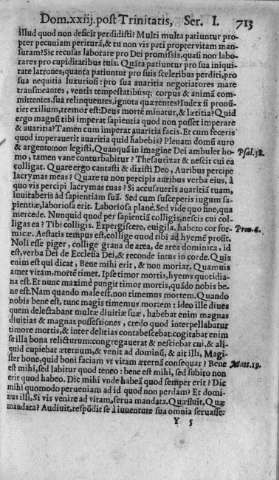 Dom. xxiij. post Trinitatis, Ser. I. 713
illud quod non deficit perdidisti? Multi multa patiuntur pro-
pter pecuniam perituram, & tu non vis pati propter vitam man-
suram? Sic recusas laborare pro Dei promissis, quasi non labo-
rares pro cupiditatibus tuis. Quanta patiuntur pro sua iniqui-
tate latrones, quanta patiuntur pro suis sceleribus perditi, pro
sua nequitia luxuriosi? pro sua auaritia negotiatores mare
transmeantes, ventis tempestatibusq; corpus & animam com-
mittentes, sua relinquentes, ignota quærentes?
ergo magnus tibi imperat sapientia quod non potest imperare
& auaritia? Tamen cum imperat auaritia facis. Et cum feceris
quod imperauerit auaritia quid habebis? Plenam domum auro
& argento non legisti, Quanquam in imagine Dei ambulet ho- Psal. 38.
mo, tamen vane conturbabitur? Thesaurizat & nescit cui ea
colligat. Quare ergo cantasti & dixisti Deo, Auribus percipe
lacrymas meas? Quare tu non percipis auribus verba eius, à
quo vis percipi lacrymas tuas? Si accusaueris auaritiam tuam,
inuitaberis ad sapientiam suam. Sed cum susceperis iugum sa-
pientiæ, laboriosa erit. Laboriosa plane. Sed vide quo sine, qua
mercede. Nunquid quod per sapientiam colligis, nescis cui col-
ligas ea? Tibi colligis. Expergiscere, euigila, habeto cor for- Prou. 6.
micæ. Aestatis tempus est, collige quod tibi ad hyemem prosit.
Noli esse piger, collige grana de area, de area dominica, id
est, verba Dei de Ecclesia Dei, & reconde intus in corde. Quis
enim est qui dicat, Bene mihi erit, & non moriar. Quamuis
amet vitam, mortem timet. Ipse timor mortis, hyems quotidia-
na est. Et tunc maxime pungit timor mortis, quando nobis be-
ne est. Nam quando male est, non timemus mortem. Quando
nobis bene est, tunc magis timemus mortem: ideo ille diues
quem delectabant multæ diuitiæ suæ, habebat enim magnas
diuitias & magnas possessiones, credo quod interpellabatur
timore mortis, & inter delitias contabescebat, cogitabat enim
se illa bona relicturum: congregauerat & nesciebat cui, & ali-
quid cupiebat æternum, & venit ad dominum, & ait illi, Magi-
ster bone, quid boni faciam vt vitam æternam consequar? Bene Matt. 19.
est mihi, sed labitur quod teneo: bene est mihi, sed subito non
erit quod habeo. Dic mihi vnde habeam quod semper erit? Dic
mihi quomodo perueniam ad id quod non perdam? Et domi-
nus illi, Si vis venire ad vitam, serua mandata. Quæsiuit, Quæ
mandata? Audiuit, respondit se à iuuentute sua omnia seruasse.
Y 5